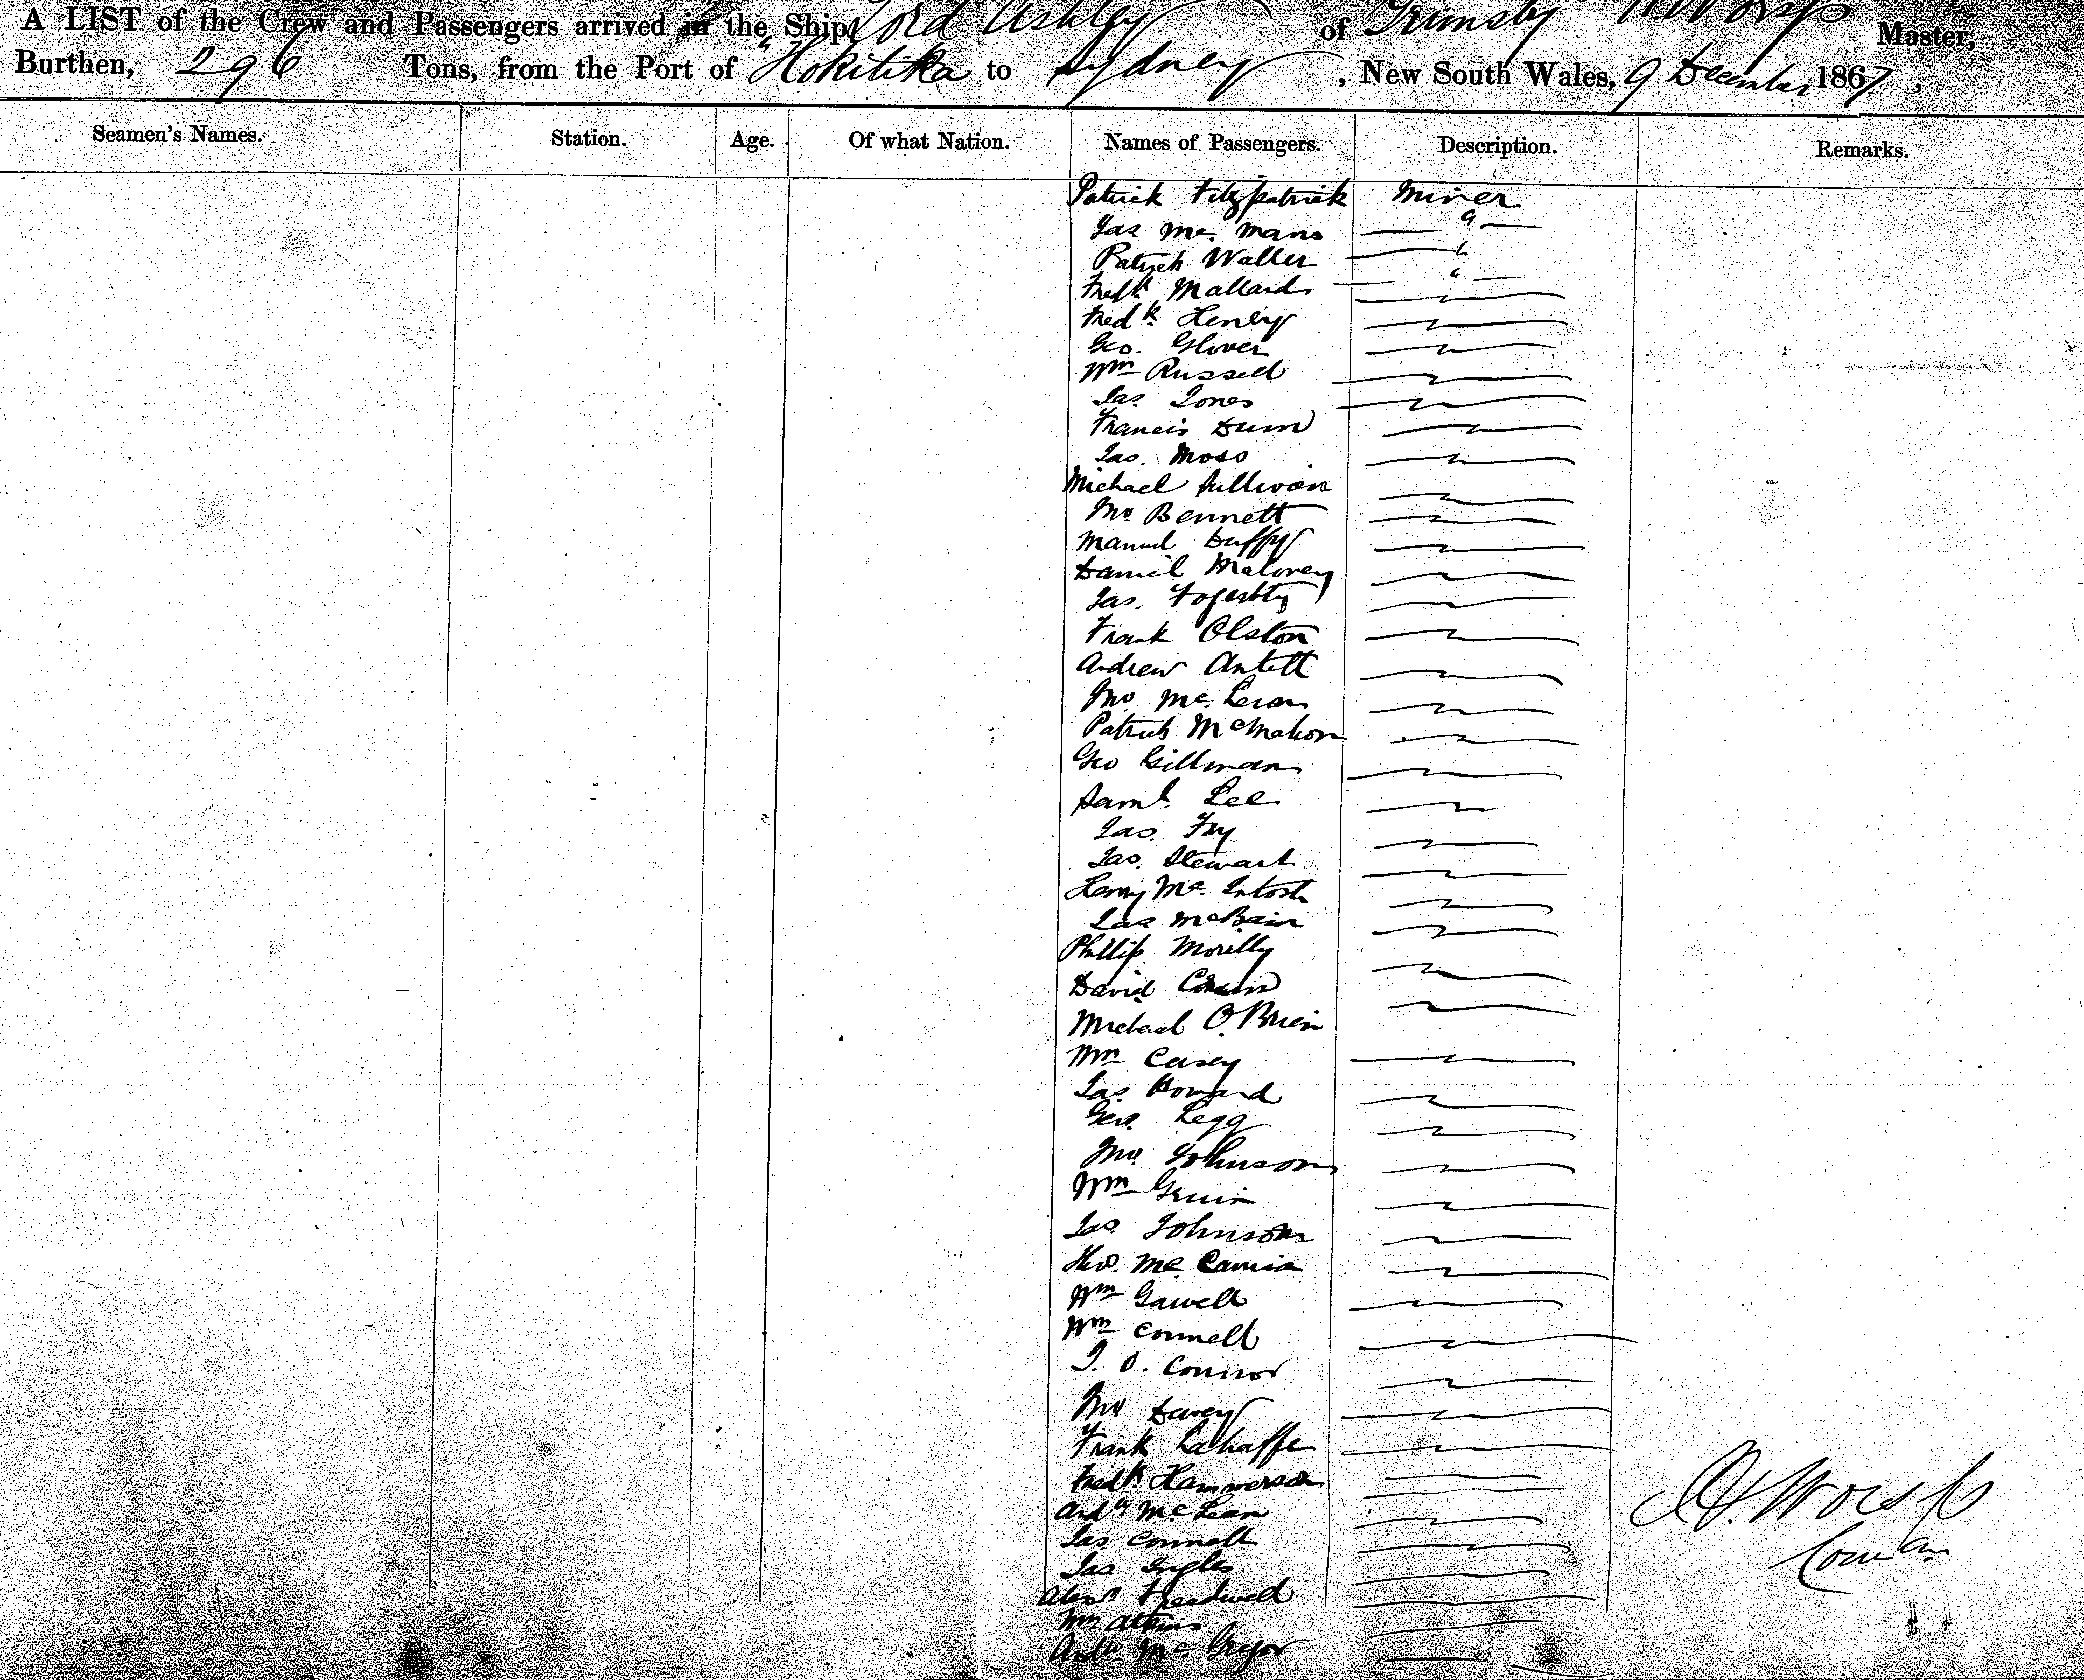 A LIST of the Crew and Passengers arrived in the Ship Lord Ashley of Grimsby Worsp Master,
Burthen, 296 Tons, from the Port of "Hokitika to Sydney, New South Wales, 9 December 1867,
Seamen's Names. Station. Age. Of what Nation. Names of Passengers. Description. Remarks.
Patrick Fitzpatrick Miner
Jas Mc. "
Patrick Waller "
Fredk Mallard "
Fredk Henley "
Geo. Glover "
Wm Russell "
Jas. Jones "
Francis Dunn "
Jas. Moss "
Michael Sullivan "
Jno Bennett "
Manuel Duffy "
Daniel Maloney "
Jas. Fogerty "
Frank Olston "
Andrew "
Jno McLean "
Patrick McMahon "
Geo Gillman "
Saml. Lee "
Jas. Fry "
Jas. Stewart "
Henry McIntosh "
Jas McBain "
Phillip Morilly "
David "
Michael O'Brien "
Wm Casey "
Jas. Howard "
Geo. Legg "
Jno Johnson "
Wm "
Jas Johnson "
Mc "
Wm Gawell "
Wm Connell "
J. O. Connor "
Jno Davey "
Frank Lahaffe "
Fredk Hammerson "
Andw McLean "
Jas Connell "
Jas "
Treadwell "
Wm Atkins
McGregor
Worsp